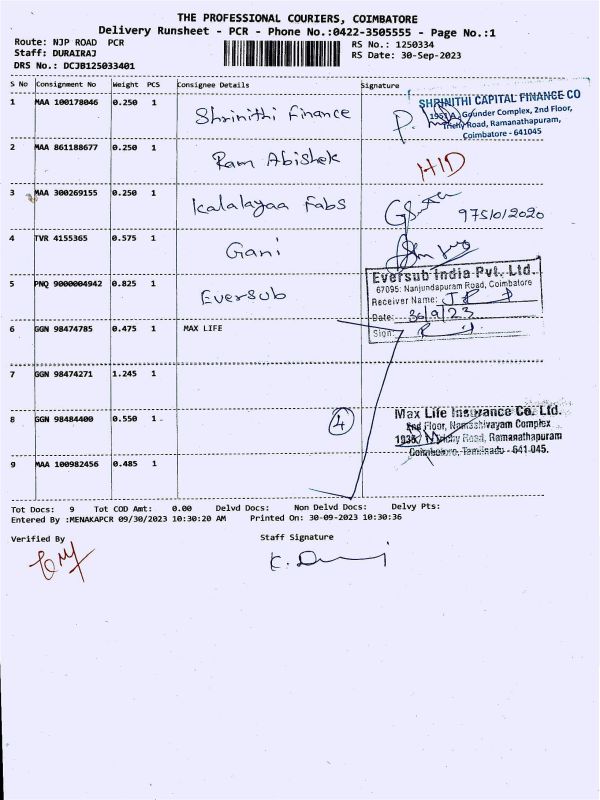 THE PROFESSIONAL COURIERS, COIMBATORE
Delivery Runsheet - PCR - Phone No.:0422-3505555 - Page No.:1
Route: NJP ROAD PCR
Staff: DURAIRAJ
DRS No.: DCJB125033401
RS No.: 1250334
RS Date: 30-Sep-2023
S No Consignment No Weight PCS Consignee Details Signature
1 MAA 100178046 0.250 1 Shrinithi Finance
SHRINITHI CAPITAL FINANCE CO
Gounder Complex, 2nd Floor,
Trichy Road, Ramanathapuram,
Coimbatore - 641045
2 MAA 861188677 0.250 1 Ram Abishek HID
3 MAA 300269155 0.250 1 Kalalayaa Fabs 975/0/2020
4 TVR 4155365 0.575 1 Gani
5 PNQ 9000004942 0.825 1 Eversub
Eversub India Pvt. Ltd.
67095, Nanjundapuram Road, Coimbatore
Receiver Name:
Date: 30/9/23
Sign:
6 GGN 98474785 0.475 1 MAX LIFE
7 GGN 98474271 1.245 1
8 GGN 98484400 0.550 1 4
Max Life Insurance Co. Ltd.
2nd Floor, Namashivayam Complex
Trichy Road, Ramanathapuram
Coimbatore, Tamilnadu - 641 045.
9 MAA 100982456 0.485 1
Tot Docs: 9 Tot COD Amt: 0.00 Delvd Docs: Non Delvd Docs: Delvy Pts:
Entered By :MENAKAPCR 09/30/2023 10:30:20 AM Printed On: 30-09-2023 10:30:36
Verified By Staff Signature